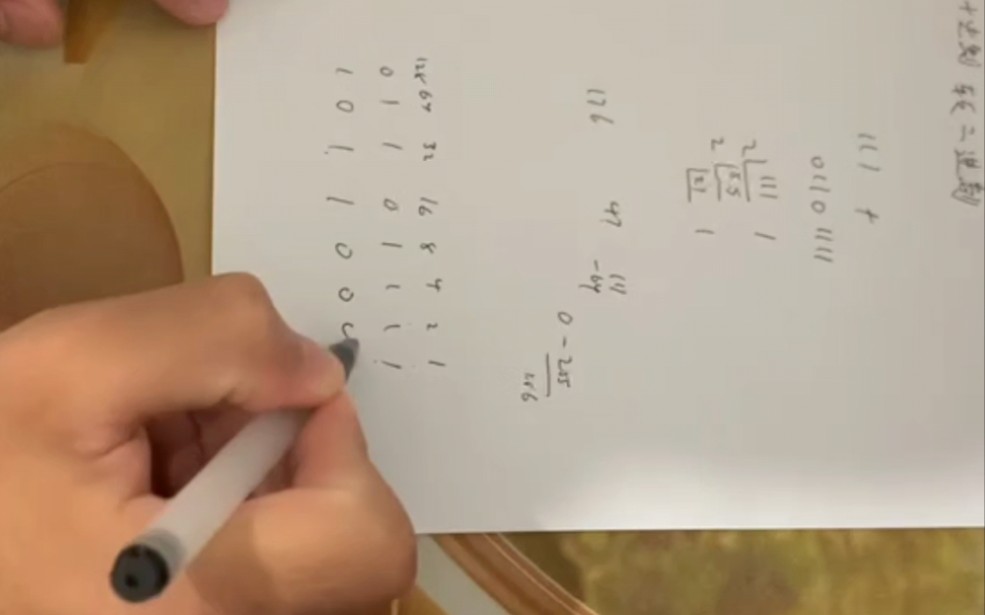 十进制 转 二进制
111 +
0110 1111
2 111 1
2 55 1
27
176 47 111
-64
0 - 255
256
128 64 32 16 8 4 2 1
0 1 1 0 1 1 1 1
1 0 1 1 0 0